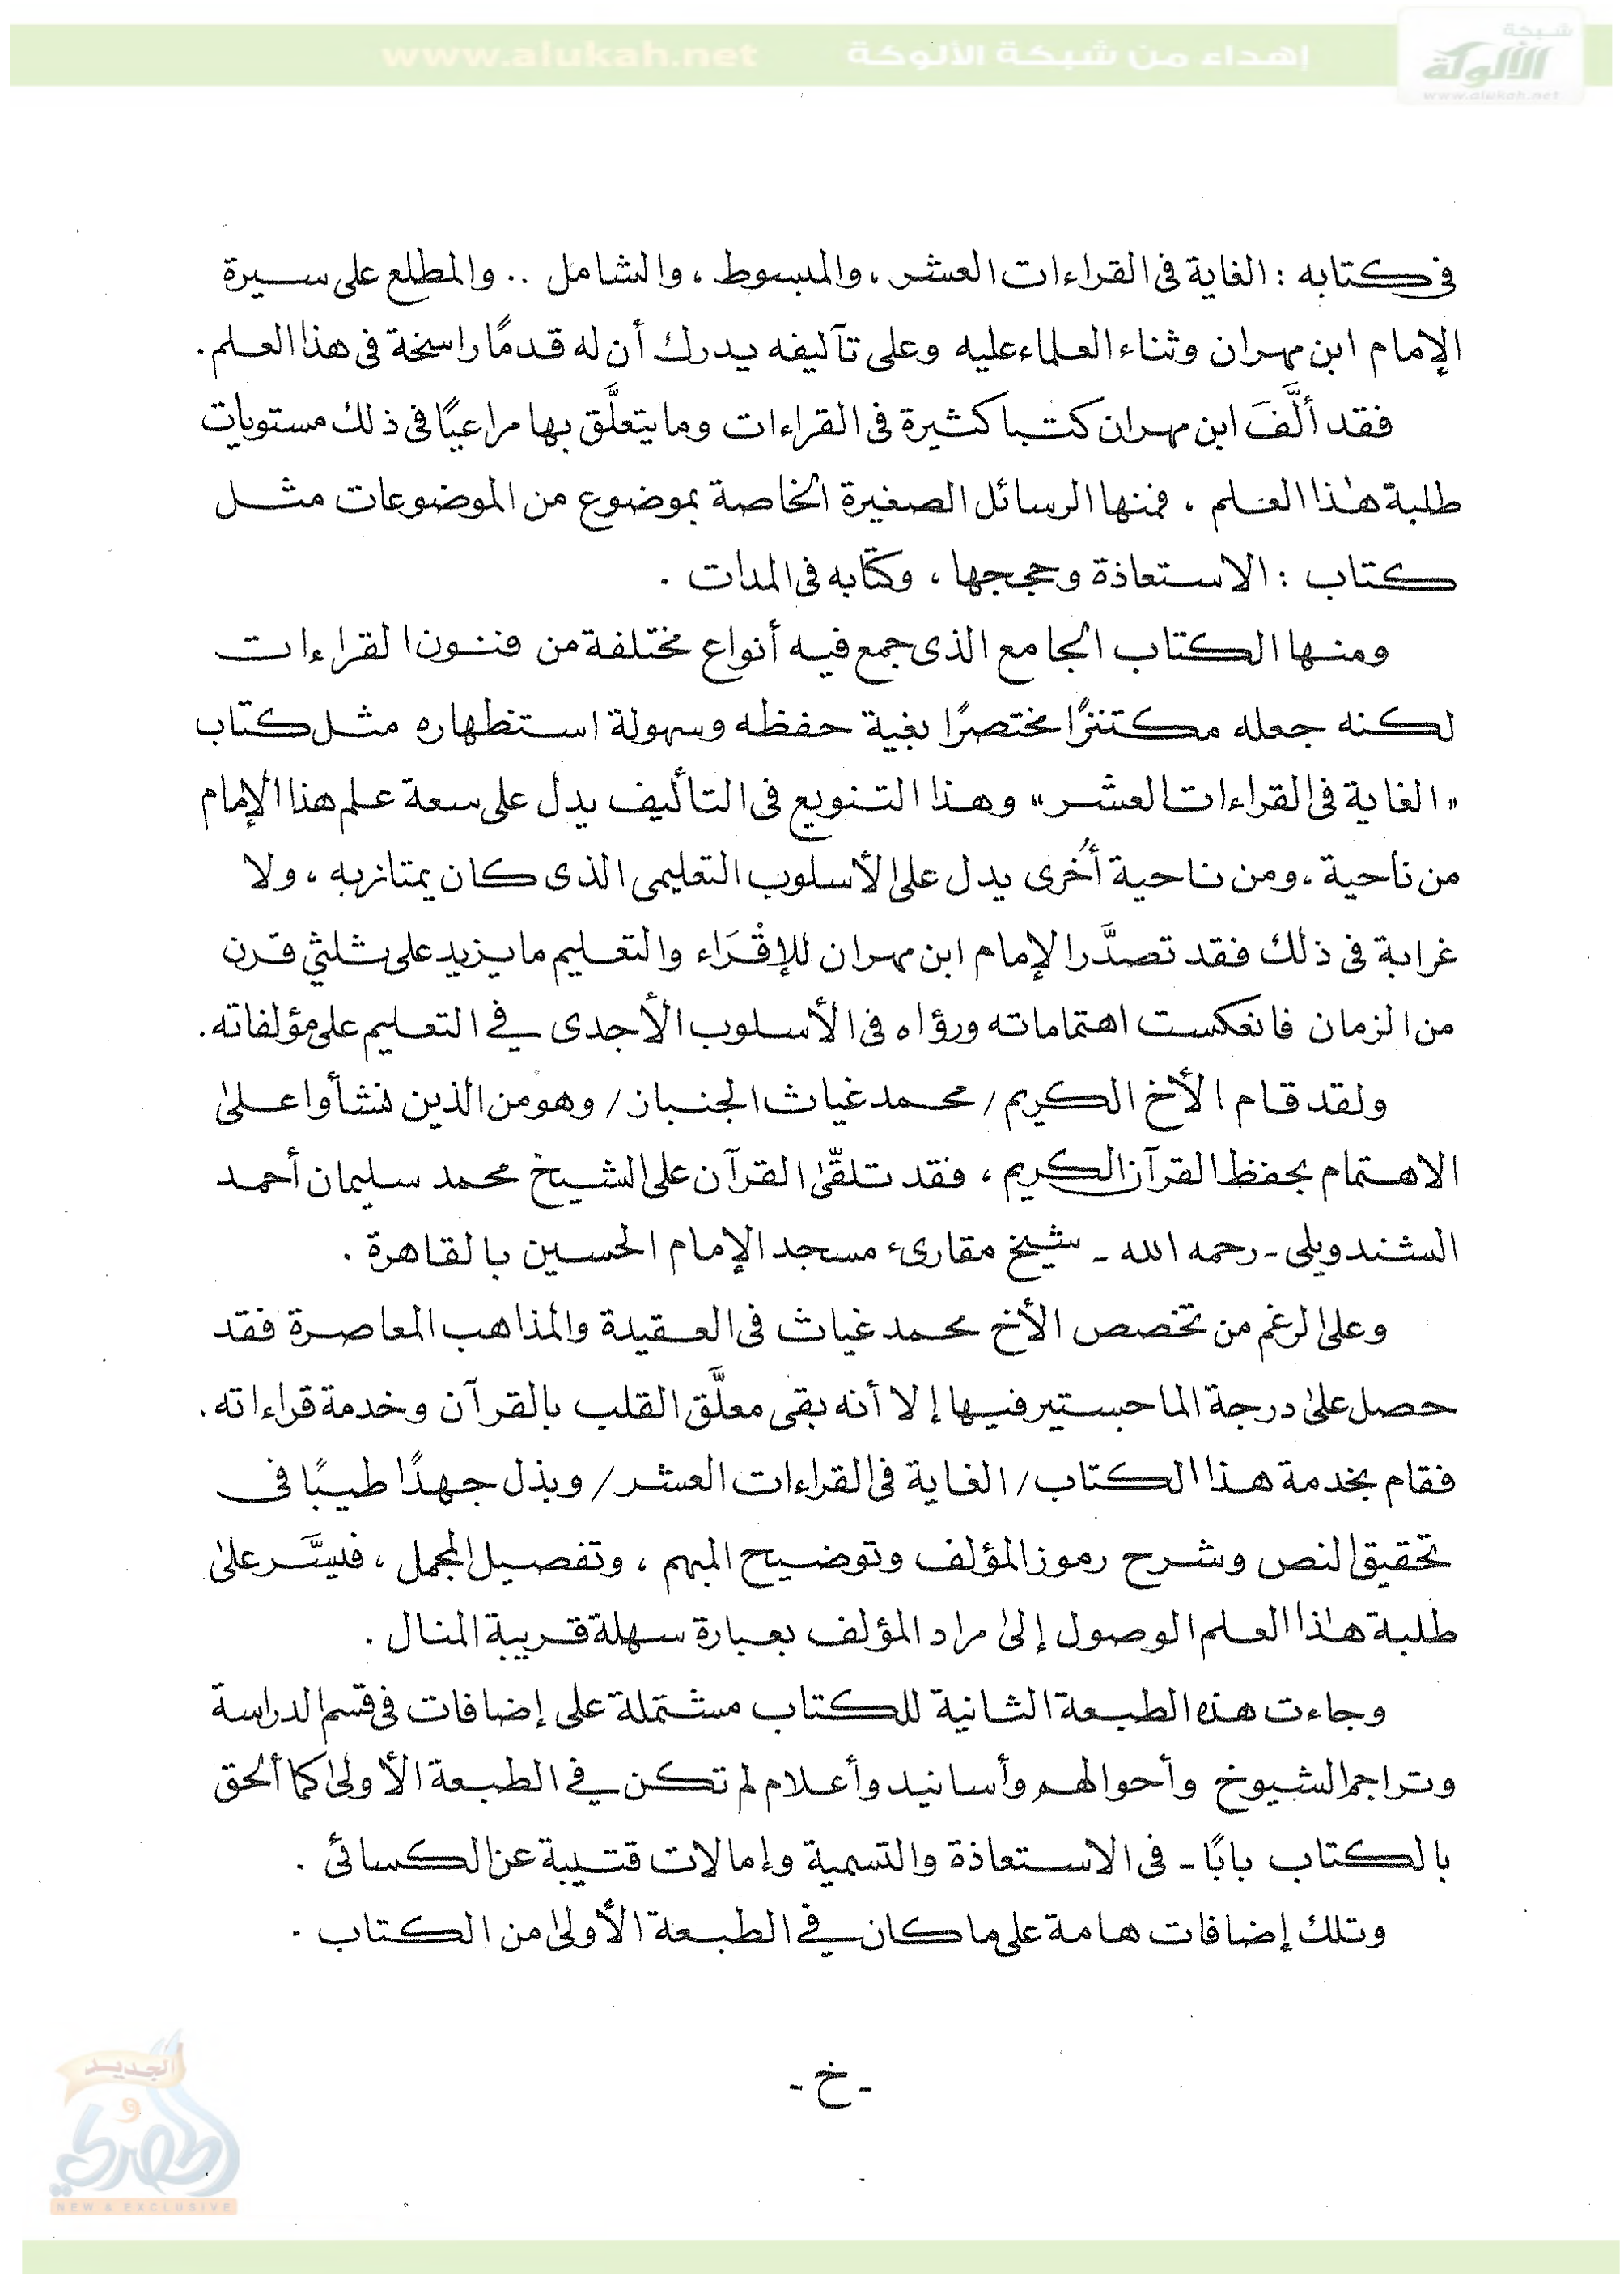 شبكة
الألوكة
www.alukah.net
إهداء من شبكة الألوكة www.alukah.net
في كتابه : الغاية في القراءات العشر ، والمبسوط ، والشامل .. والمطلع على سيرة
الإمام ابن مهران وثناء العلماء عليه وعلى تآليفه يدرك أن له قدمًا راسخة في هذا العلم .
فقد ألَّفَ ابن مهران كتبا كثيرة في القراءات وما يتعلَّق بها مراعيًا في ذلك مستويات
طلبة هٰذا العلم ، فمنها الرسائل الصغيرة الخاصة بموضوع من الموضوعات مثل
كتاب : الاستعاذة وحججها ، وكتابه في المدات .
ومنها الكتاب الجامع الذي جمع فيه أنواع مختلفة من فنون القراءات
لكنه جعله مكتنزًا مختصرًا بغية حفظه وسهولة استظهاره مثل كتاب
« الغاية في القراءات العشر » وهذا التنويع في التأليف يدل على سعة علم هذا الإمام
من ناحية ، ومن ناحية أُخرى يدل على الأسلوب التعليمي الذي كان يمتاز به ، ولا
غرابة في ذلك فقد تصدَّر الإمام ابن مهران للإقْرَاء والتعليم ما يزيد على ثلثي قرن
من الزمان فانعكست اهتماماته ورؤاه في الأسلوب الأجدى في التعليم على مؤلفاته .
ولقد قام الأخ الكريم / محمد غياث الجنباز / وهو من الذين نشأوا علىٰ
الاهتمام بحفظ القرآن الكريم ، فقد تلقّىٰ القرآن على الشيخ محمد سليمان أحمد
الشندويلي - رحمه الله - شيخ مقارىء مسجد الإمام الحسين بالقاهرة .
وعلى الرغم من تخصص الأخ محمد غياث في العقيدة والمذاهب المعاصرة فقد
حصل علىٰ درجة الماجستير فيها إلا أنه بقي معلَّق القلب بالقرآن وخدمة قراءاته .
فقام بخدمة هذا الكتاب / الغاية في القراءات العشر / وبذل جهدًا طيبًا في
تحقيق النص وشرح رموز المؤلف وتوضيح المبهم ، وتفصيل المجمل ، فيسَّر علىٰ
طلبة هٰذا العلم الوصول إلىٰ مراد المؤلف بعبارة سهلة قريبة المنال .
وجاءت هذه الطبعة الثانية للكتاب مشتملة على إضافات في قسم الدراسة
وتراجم الشيوخ وأحوالهم وأسانيد وأعلام لم تكن في الطبعة الأولىٰ كما ألحق
بالكتاب بابًا - في الاستعاذة والتسمية وإمالات قتيبة عن الكسائي .
وتلك إضافات هامة على ما كان في الطبعة الأولىٰ من الكتاب .
- خ -
الجديد
و
الحصري
NEW & EXCLUSIVE